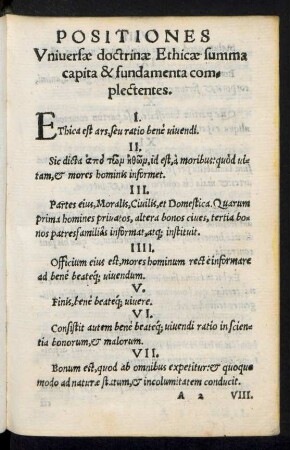 POSITIONES
Vniuersæ doctrinæ Ethicæ summa
capita & fundamenta com-
plectentes.
I.
EThica est ars, seu ratio benè viuendi.
II.
Sic dicta ἀπὸ τῶν ἠθῶν, id est, à moribus: quòd ui-
tam, & mores hominis informet.
III.
Partes eius, Moralis, Ciuilis, et Domestica. Quarum
prima homines priuatos, altera bonos ciues, tertia bo-
nos patresfamiliâs informat, atq; instituit.
IIII.
Officium eius est, mores hominum rectè informare
ad benè beateq́; viuendum.
V.
Finis, benè beateq́; viuere.
VI.
Consistit autem benè beateq́; viuendi ratio in scien-
tia bonorum, & malorum.
VII.
Bonum est, quod ab omnibus expetitur: & quoquo
modo ad naturæ statum, & incolumitatem conducit.
A 2 VIII.